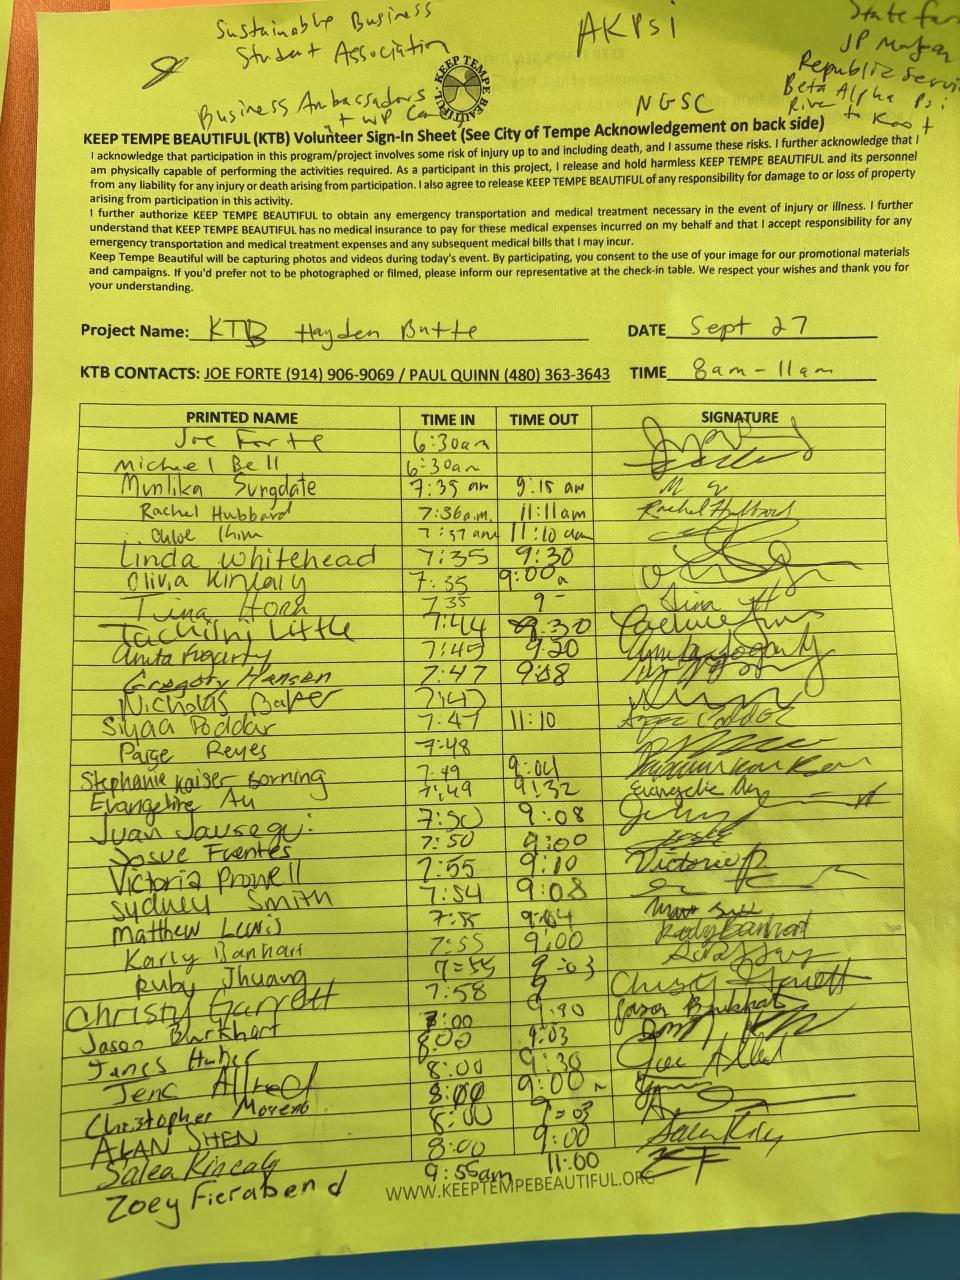 Sustainable Business
Student Association
AKPsi
State Far
JP Morgan
Republic Servi
Beta Alpha Psi
River to Root
Business Ambassadors
+ WP Ca
NGSC
KEEP TEMPE BEAUTIFUL
KEEP TEMPE BEAUTIFUL (KTB) Volunteer Sign-In Sheet (See City of Tempe Acknowledgement on back side)
I acknowledge that participation in this program/project involves some risk of injury up to and including death, and I assume these risks. I further acknowledge that I
am physically capable of performing the activities required. As a participant in this project, I release and hold harmless KEEP TEMPE BEAUTIFUL and its personnel
from any liability for any injury or death arising from participation. I also agree to release KEEP TEMPE BEAUTIFUL of any responsibility for damage to or loss of property
arising from participation in this activity.
I further authorize KEEP TEMPE BEAUTIFUL to obtain any emergency transportation and medical treatment necessary in the event of injury or illness. I further
understand that KEEP TEMPE BEAUTIFUL has no medical insurance to pay for these medical expenses incurred on my behalf and that I accept responsibility for any
emergency transportation and medical treatment expenses and any subsequent medical bills that I may incur.
Keep Tempe Beautiful will be capturing photos and videos during today's event. By participating, you consent to the use of your image for our promotional materials
and campaigns. If you'd prefer not to be photographed or filmed, please inform our representative at the check-in table. We respect your wishes and thank you for
your understanding.
Project Name: KTB Hayden Butte DATE Sept 27
KTB CONTACTS: JOE FORTE (914) 906-9069 / PAUL QUINN (480) 363-3643 TIME 8am - 11am
PRINTED NAME TIME IN TIME OUT SIGNATURE
Joe Forte 6:30am
Michael Bell 6:30am
Munlika Sungdate 7:35 am 9:15 am M S
Rachel Hubbard 7:36a.m. 11:11am Rachel Hubbard
Chloe 7:37 am 11:10 am
Linda Whitehead 7:35 9:30
Olivia Kinlaly 7:35 9:00a
Tina Horn 7 35 9- Tina H
Little 7:44 9:30
Anita Fogarty 7:45 9:20
Gregory Hansen 7:47 9:08
Nicholas Baker 7:47
Siyaa Poddar 7:47 11:10
Paige Reyes 7:48
Stephanie Kaiser Borning 7:49 9:04
Evangeline Au 7:49 9:32 Evangeline Au
Juan Jausegui 7:50 9:08
Josue Fuentes 7:50 9:00 Josue
Victoria Prowell 7:55 9:10 Victoria P
Sydney Smith 7:54 9:08
Matthew Lewis 7:55 9:04
Karly Banhart 7:55 9:00 Karly Banhart
Ruby Jhuang 7=55 9=03
Christy Garrott 7:58 9 Christy Garrott
Jason Burkhart 8:00 9:30 Jason Burkhart
James Huber 8:00 9:03
Jene Allred 8:00 9:30 Jene Allred
Christopher Moreno 8:00 9:00
ALAN SHEN 8:00 9=03
Salea Kincaly 8:00 9:00 Salea Kincaly
Zoey Fierabend 9:55am 11:00 ZF
WWW.KEEPTEMPEBEAUTIFUL.ORG